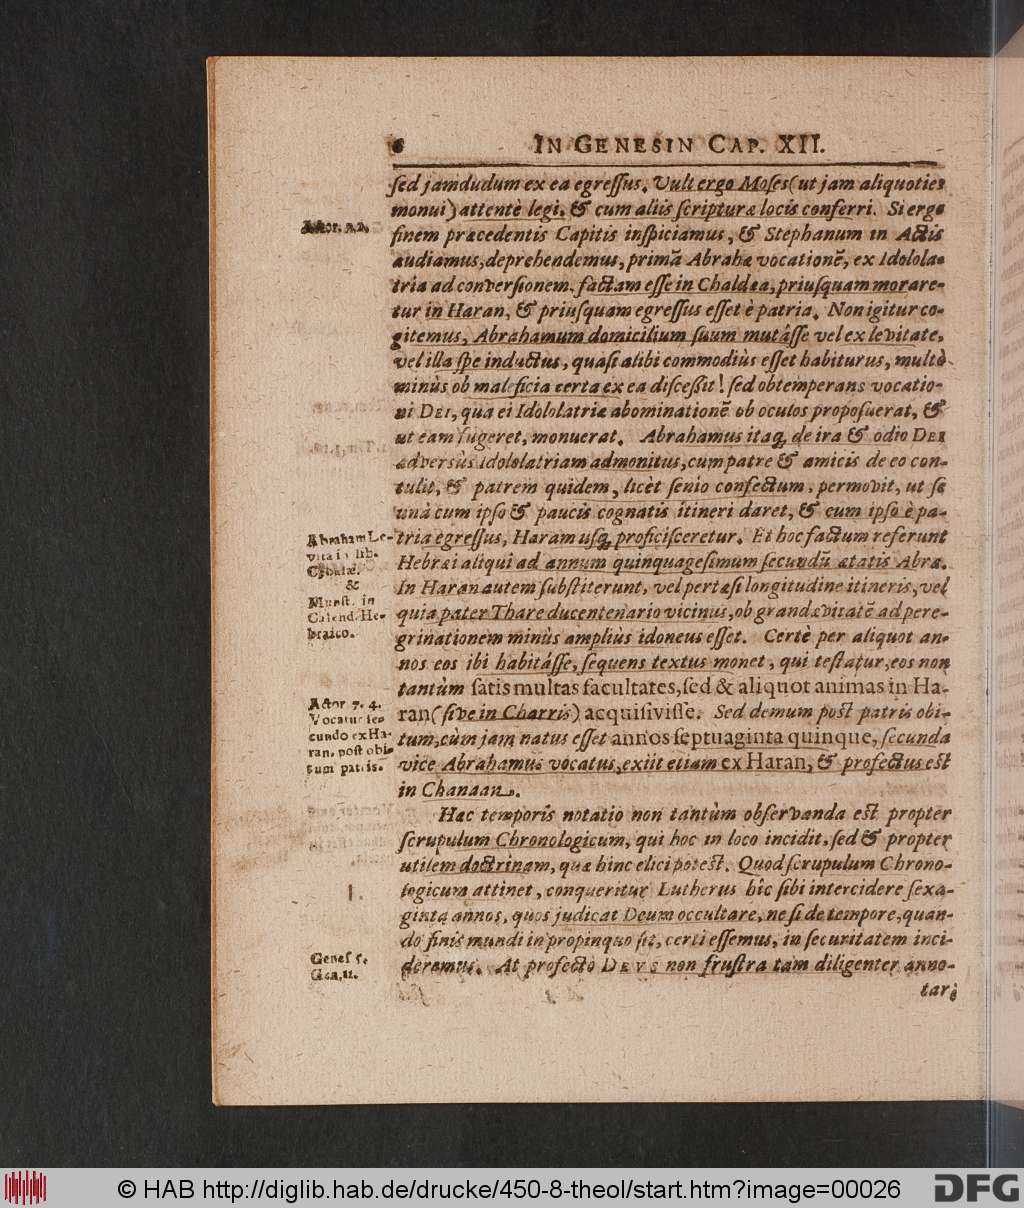 6 IN GENESIN CAP. XII.
ſed jamdudum ex ea egreſſus. Vult ergo Moſes (ut jam aliquoties
monui) attentè legi, & cum aliis ſcripturæ locis conferri. Si ergo
finem præcedentis Capitis inſpiciamus, & Stephanum in Actis
audiamus, deprehendemus, primā Abrahæ vocationē, ex Idolola-
tria ad converſionem, factam eſſe in Chaldæa, priuſquam morare-
tur in Haran, & priuſquam egreſſus eſſet è patria. Non igitur co-
gitemus, Abrahamum domicilium ſuum mutáſſe vel ex levitate,
vel illa ſpe inductus, quaſi alibi commodiùs eſſet habiturus, multò
minùs ob maleficia certa ex ea diſceſſit! ſed obtemperans vocatio-
ni DEI, qua ei Idololatriæ abominationē ob oculos propoſuerat, &
ut eam fugeret, monuerat. Abrahamus itaq; de ira & odio DEI
adversùs Idololatriam admonitus, cum patre & amicis de eo con-
tulit, & patrem quidem, licèt ſenio confectum, permovit, ut ſe
unà cum ipſo & paucis cognatis itineri daret, & cum ipſo è pa-
tria egreſſus, Haram uſq; proficiſceretur. Et hoc factum referunt
Hebræi aliqui ad annum quinquageſimum ſecundū ætatis Abræ.
In Haran autem ſubſtiterunt, vel pertæſi longitudine itineris, vel
quia pater Thare ducentenario vicinus, ob grandævitatē ad pere-
grinationem minùs ampliùs idoneus eſſet. Certè per aliquot an-
nos eos ibi habitáſſe, ſequens textus monet, qui teſtatur, eos non
tantùm ſatis multas facultates, ſed & aliquot animas in Ha-
ran (ſive in Charris) acquiſiviſſe. Sed demum poſt patris obi-
tum, cùm jam natus eſſet annos ſeptuaginta quinque, ſecunda
vice Abrahamus vocatus, exiit etiam ex Haran, & profectus eſt
in Chanaan.
Hæc temporis notatio non tantùm obſervanda eſt propter
ſcrupulum Chronologicum, qui hoc in loco incidit, ſed & propter
utilem doctrinam, quæ hinc elici poteſt. Quod ſcrupulum Chrono-
logicum attinet, conqueritur Lutherus hîc ſibi intercidere ſexa-
ginta annos, quos judicat Deum occultare, ne ſi de tempore, quan-
do finis mundi in propinquo ſit, certi eſſemus, in ſecuritatem inci-
deremus. At profectò DEUS non fruſtra tam diligenter anno-
tari
Actor. 7. 2.
Abraham Le-
vita in lib.
Cabalæ.
&
Munſt. in
Calend. He-
braico.
Actor 7. 4.
Vocatur ſe-
cundo ex Ha-
ran, poſt obi-
tum patris.
I.
Geneſ 5.
Gen. 11.
© HAB http://diglib.hab.de/drucke/450-8-theol/start.htm?image=00026
DFG